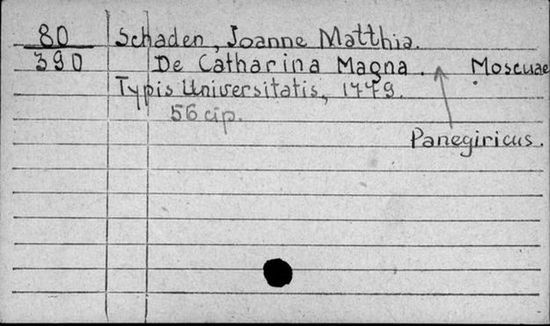 80 Schaden, Joanne Matthia.
390 De Catharina Magna. Moscuae
Typis Universitatis, 1779.
56 cip.
Panegiricus.